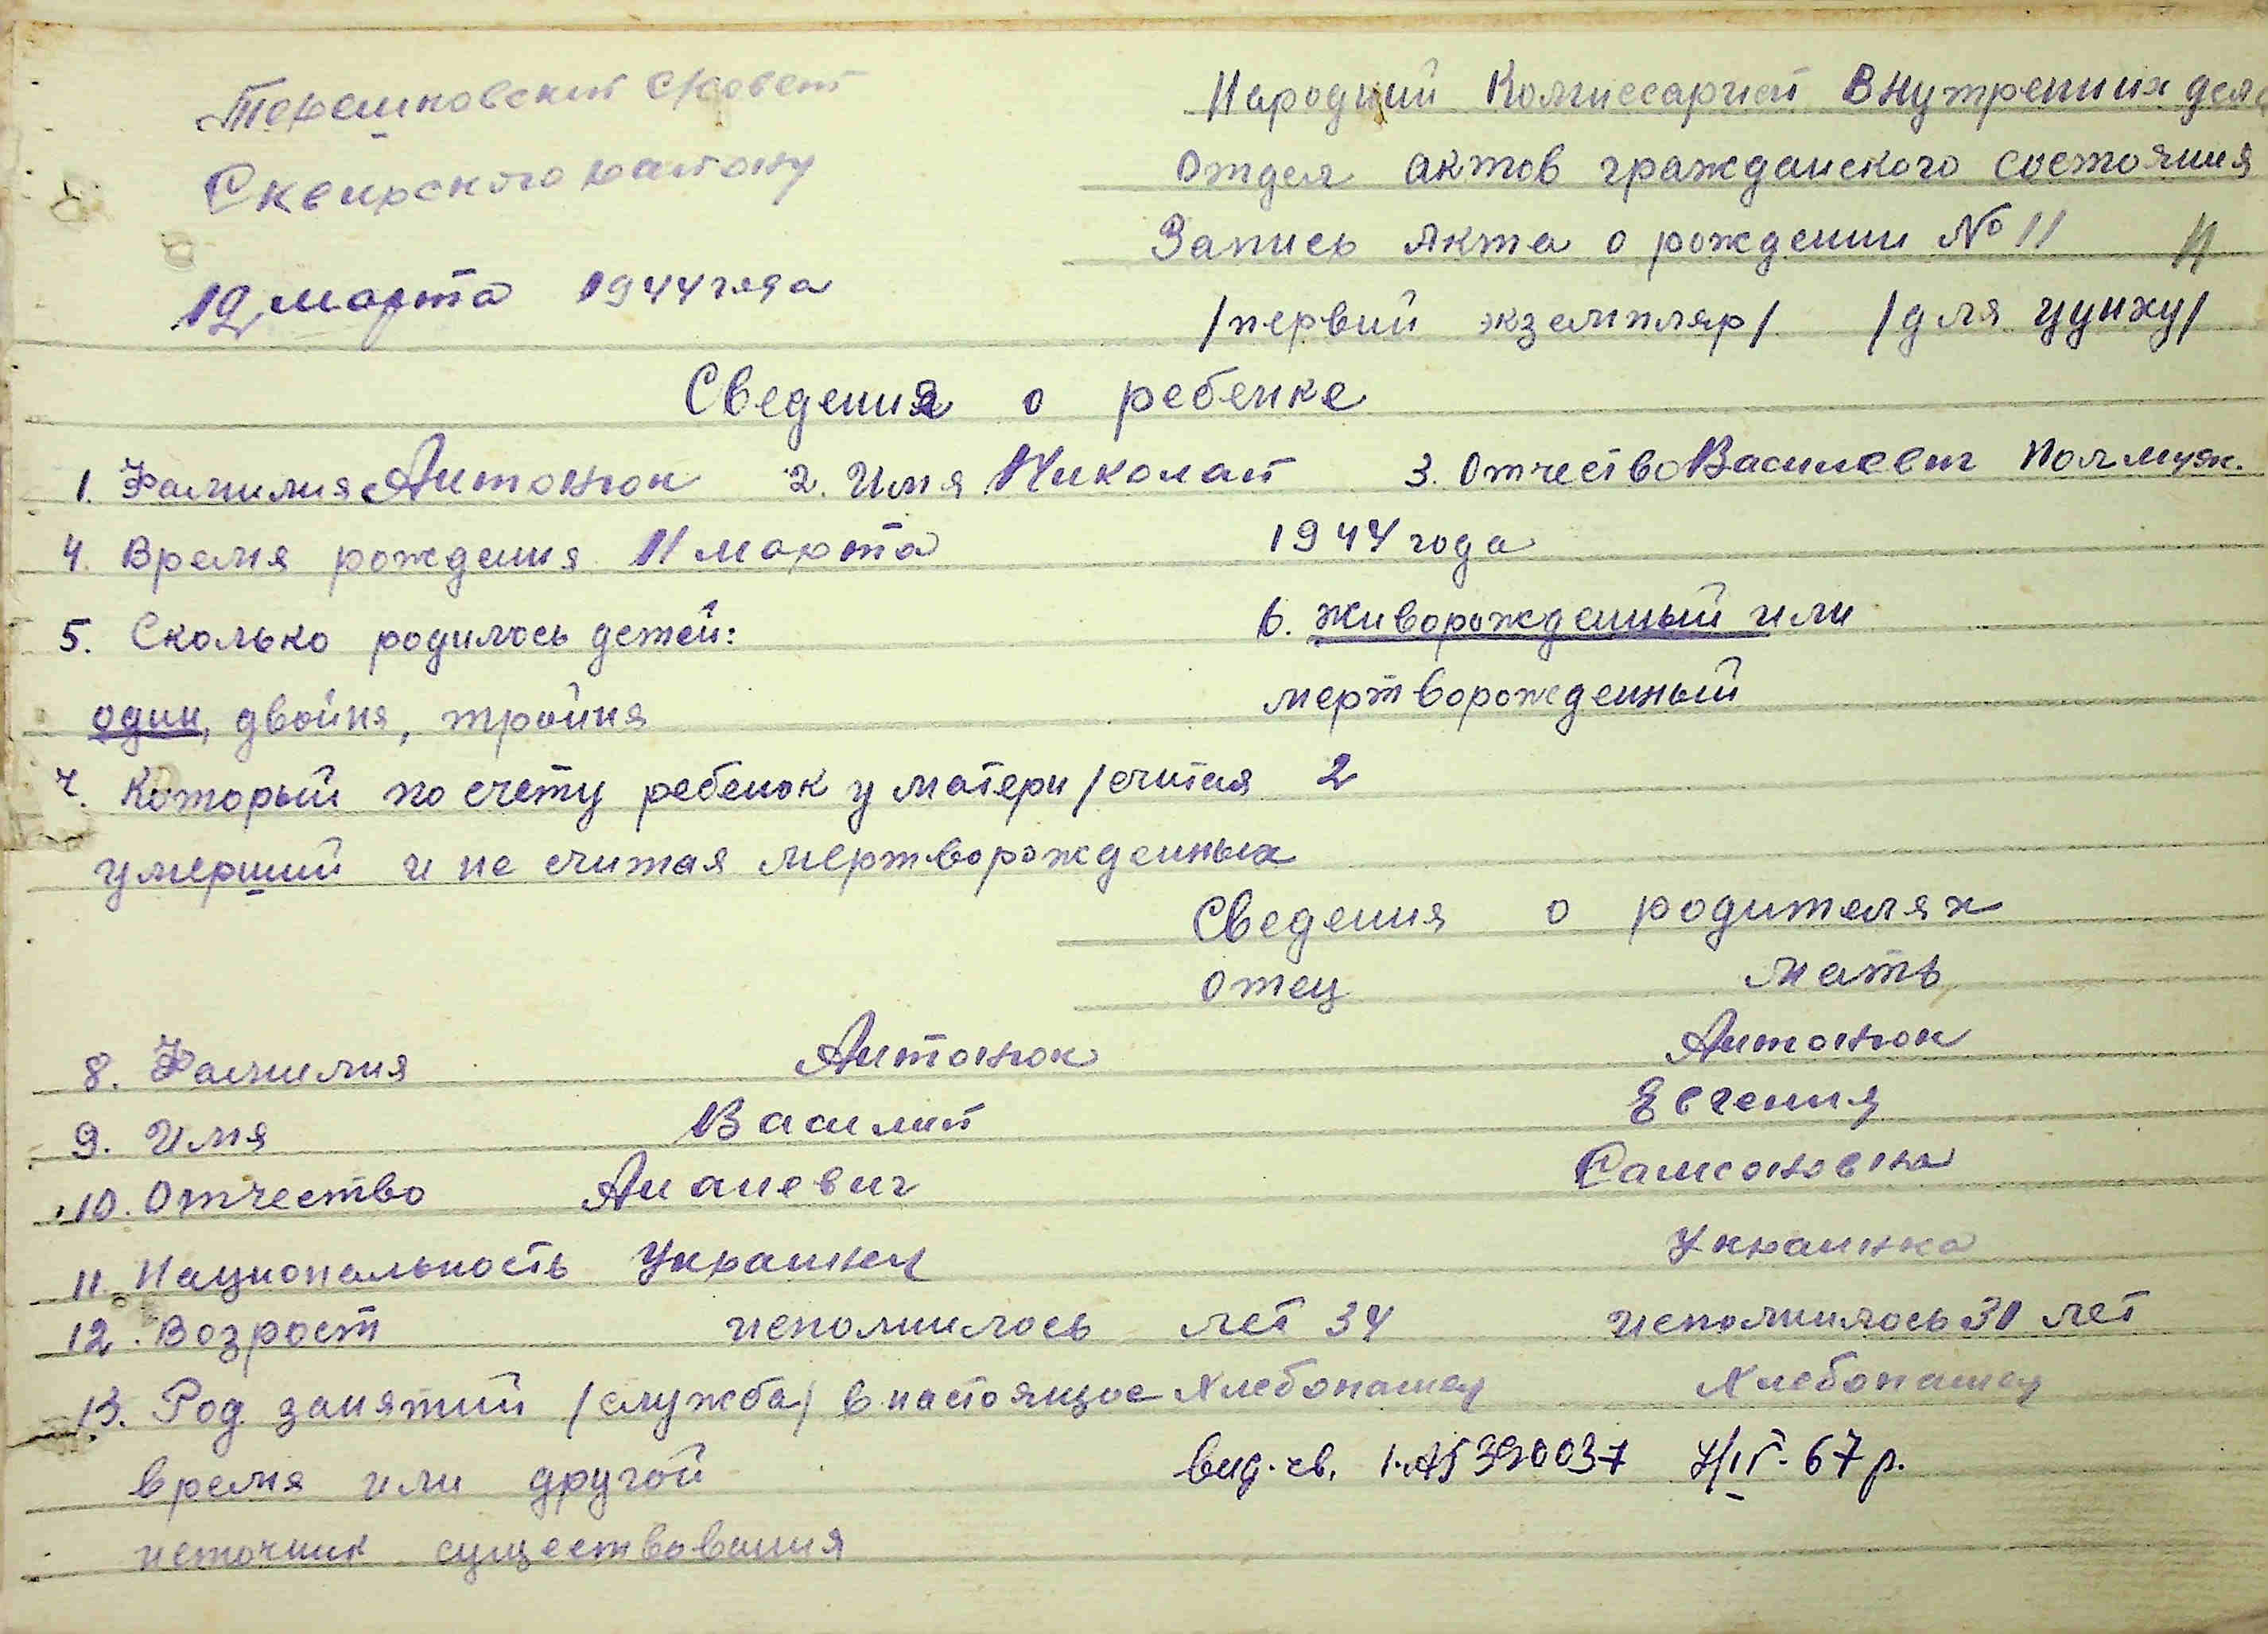 Терешковский с/совет
Сквирского району
12 марта 1944 года
Народний Комиссариат Внутренних дел
Отдел актов гражданского состояния
Запись Акта о рождении № 11 11
/первий экземпляр/ /для цунху/
Сведения о ребенке
1. Фамилия Антонюк 2. Имя Николай 3. Отчество Василевич Пол муж.
4. Время рождения 11 марта 1944 года
5. Сколько родилось детей: 6. живорожденный или
один, двойня, тройня мертворожденный
7. Который по счету ребенок у матери /считая 2
умерший и не считая мертворожденных
Сведения о родителях
отец мать
8. Фамилия Антонюк Антонюк
9. Имя Василий Евгения
10. Отчество Ананевич Самсоновна
11. Национальность Украинец Украинка
12. Возраст исполнилось лет 34 исполнилось 30 лет
13. Род занятий /служба/ в настоящое Хлебопашец Хлебопашец
время или другой вид. св. 390037 67 р.
источник существования